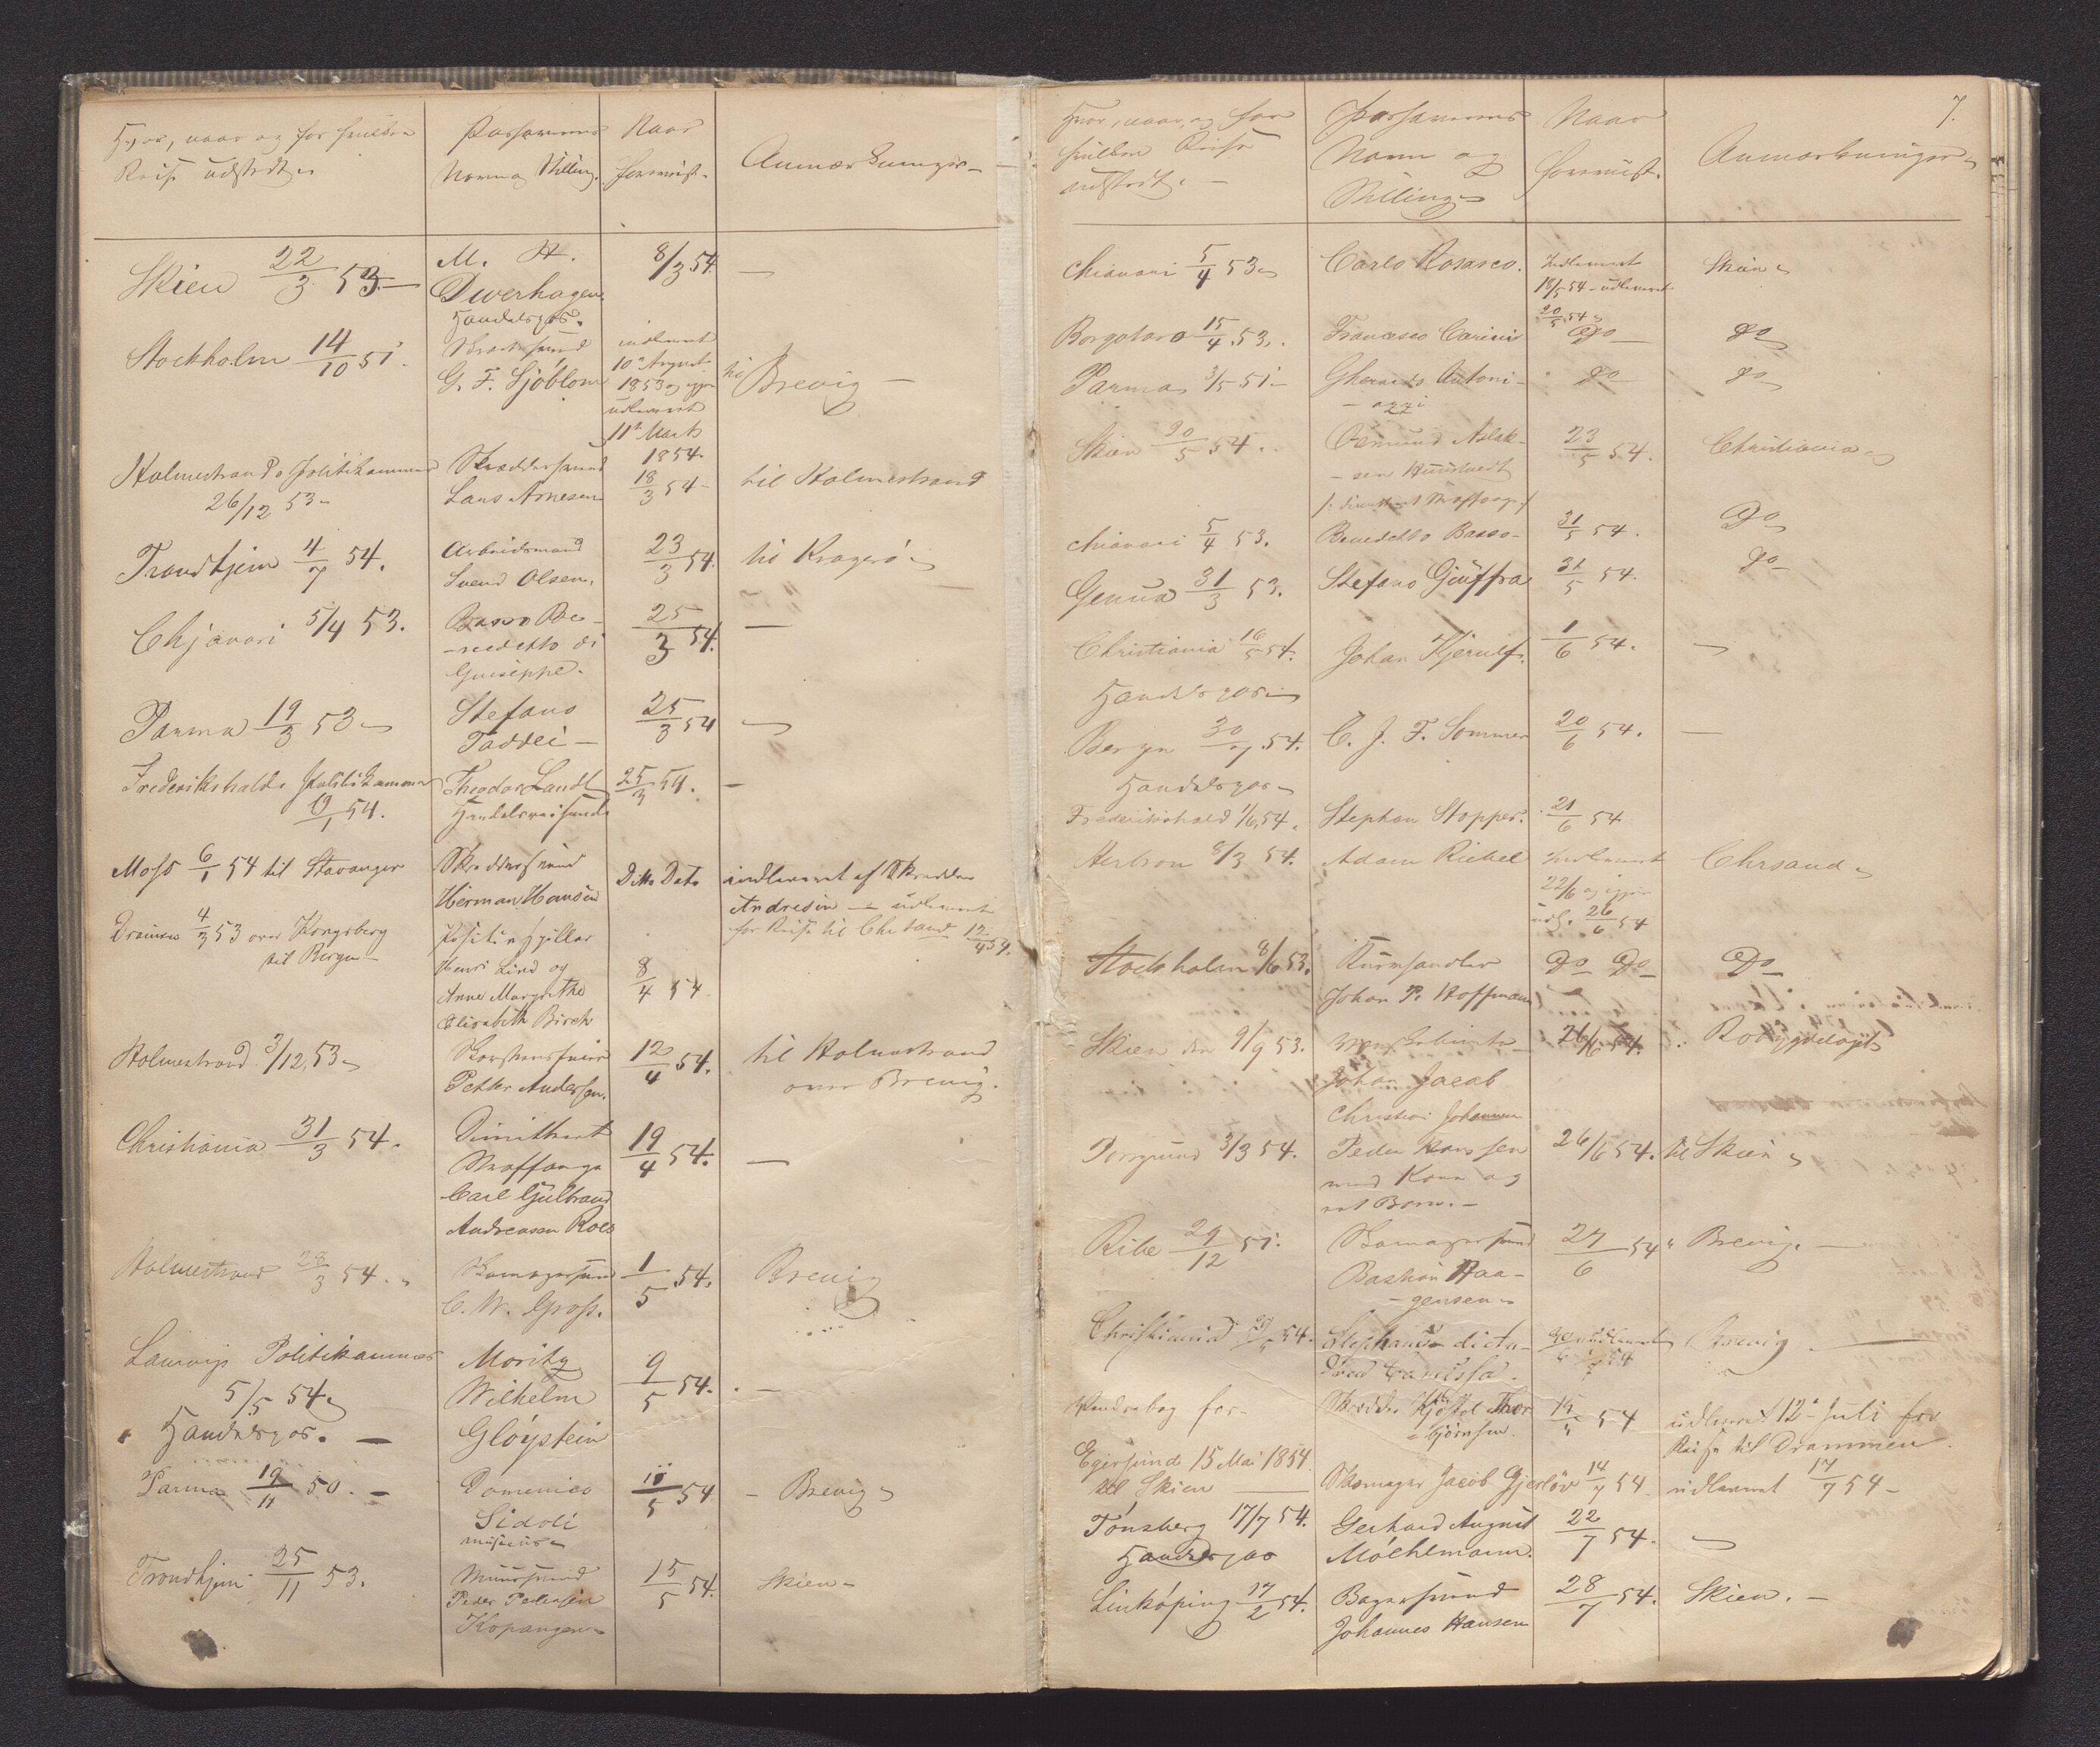 Hvor, naar og for hvilken
Reise udstedt
Passarens
Navn og Stilling.
Naar
forevist.
Anmærkninger
Skien 22/3 53
M. H.
Dverhagen
Handelspas.
8/3 54.
—
Stockholm 14/10 51.
G. F. Sjöblom
indleveret
10de August
1853 og igjen
udleveret
11te Marts
1854.
til Brevig —
Holmestrands Politikammer
26/12 53
Skræddersvend
Lars Arnesen
18/3 54
til Holmestrand
Trondhjem 4/7 54.
Arbeidsmand
Svend Olsen.
23/3 54.
til Kragerö
Chjavari 5/4 53.
Basso Be-
-nedetto di
Guiseppe.
25/3 54.
—
Parma 19/3 53
Stefano
Taddei —
25/3 54
—
Frederikshalds Politikammer
19/1 54.
Theodor Landt
Handelsreisende
25/3 54.
—
Moss 6/1 54 til Stavanger
Skræddersvend
Herman Hansen
Ditto Dato
indleveret af Skrædder
Andresen — udleveret
for Reise til Chrsand 12/4 54.
Drammen 4/3 53 over Kongsberg
til Bergen —
Positivspiller
Henri Lind og
Anne Margrethe
Elisabeth Birch
8/4 54
Holmestrand 3/12 53
Skorstensfeier
Petter Andersen.
12/4 54.
til Holmestrand
over Brevig.
Christiania 31/3 54.
Dimitteret
Straffange
Carl Gulbrand
Andreasen Roes
19/4 54.
—
Holmestrand 28/3 54.
Skomagersvend
C. W. Gross.
1/5 54.
Brevig
Laurvigs Politikammer
5/5 54.
Handelspas. —
Moritz
Wilhelm
Glöystein
9/5 54.
—
Parma 19/11 50. —
Domenico
Sidoli
musicus
11/5 54
— Brevig
Trondhjem 25/11 53.
Muursvend
Peder Pedersen
Kopangen
15/5 54.
Skien
7.
Hvor, naar, og for
hvilken Reise
udstedt. —
Passarens
Navn og
Stilling
Naar
forevist.
Anmærkninger
Chiavari 5/4 53
Carlo Rosasco.
Indleveret
18/5 54 - udleveret
20/5 54
Skien
Borgotaro 15/4 53.
Francesco Carini
Do
Do
Parma 3/5 51
Gherardo Antoni-
- ozzi
Do
Do
Skien 20/5 54.
Osmund Aslak-
-sen
/: dimitteret Straffange :/
23/5 54.
Christiania
Chiavari 5/4 53.
Benedetto Basso
31/5 54.
Do
Genua 31/3 53.
Stefano Giuffra
31/5 54.
Do
Christiania 16/5 54.
Handelspas
Johan Kjerulf.
1/6 54.
—
Bergen 30/7 54.
Handelspas
C. J. F. Sommer
20/6 54.
—
Frederikshald 1/6 54.
Stephan Stopper.
21/6 54
Herbron 8/3 54.
Adam Rickel
Indleveret
22/6 og igjen
udl. 26/6 54
Chrsand
Stockholm 8/6 53.
Johan P. Hoffmann
Do Do
Do
Skien den 9/9 53.
Johan Jacob
Christian Johannesen
26/6 54.
Porsgrund 3/3 54.
Peder Hanssen
med Kone og
et Barn. —
26/6 54.
til Skien
Ribe 29/12 51.
Skomagersvend
Bastian Haa-
- gensen
27/6 54
Brevig. —
Christiania 54.
Brevig
Vandrebog for
Skrædder Kjöstol Thor-
- björnsen.
54
udleveret 12te Juli for
Reise til Drammen.
Egersund 15 Mai 1854.
til Skien
Skomager Jacob Gjerlöv
14/7 54
udleveret 17/7 54 —
Tönsberg 17/7 54.
Handelspas
Gerhard August
Möehlmann.
22/7 54.
—
Linköping 17/2 54.
Bagersvend
Johannes Hansen
28/7 54.
Skien. —